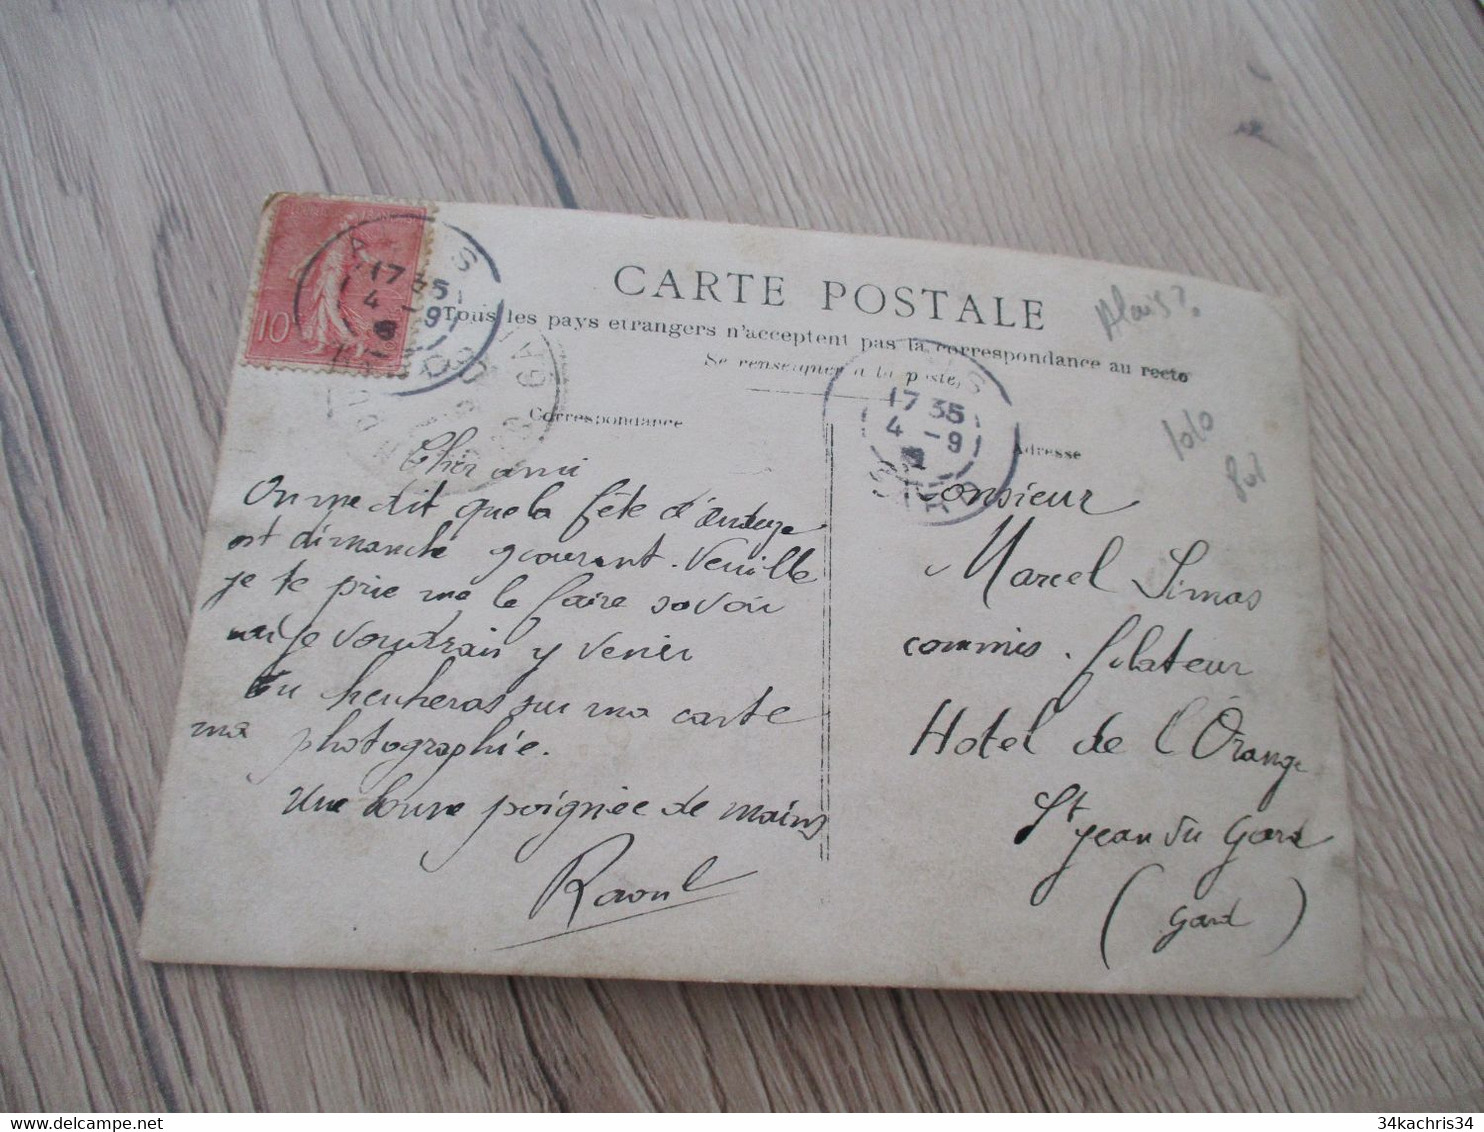 CARTE POSTALE
Tous les pays etrangers n'acceptent pas la correspondance au recto
Se renseigner a la poste,
Correspondance
Adresse
10
17 35
4 -9
17 35
4 -9
GARD
Alais?
Cher ami
On me dit que la fête d'Anduze
est dimanche 9 courant. Veuille
je te prie me le faire savoir
car je voudrais y venir
Tu heuheras sur ma carte
ma photographie.
Une bonne poignée de mains
Raoul
Monsieur
Marcel Simas
commis. filateur
Hotel de l'Orange
St Jean du Gard
(Gard)
34kachris34
34kachris34